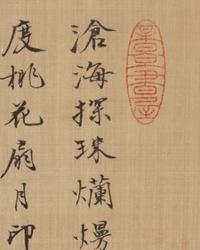 滄海探珠爛熳
度桃花扇月印